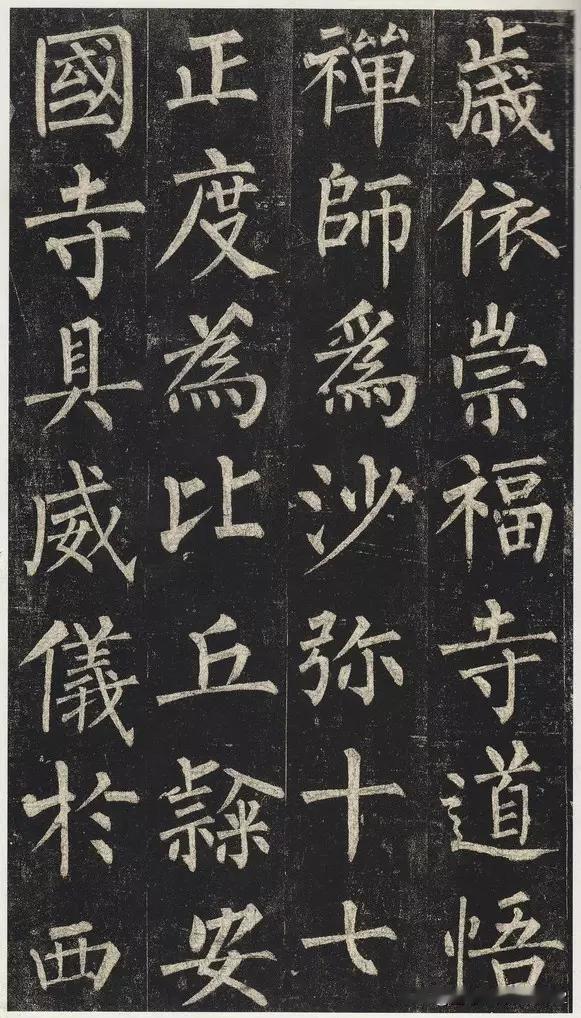 歳依崇福寺道悟
禪師爲沙弥十七
正度為比丘𨽻安
國寺具威儀於西